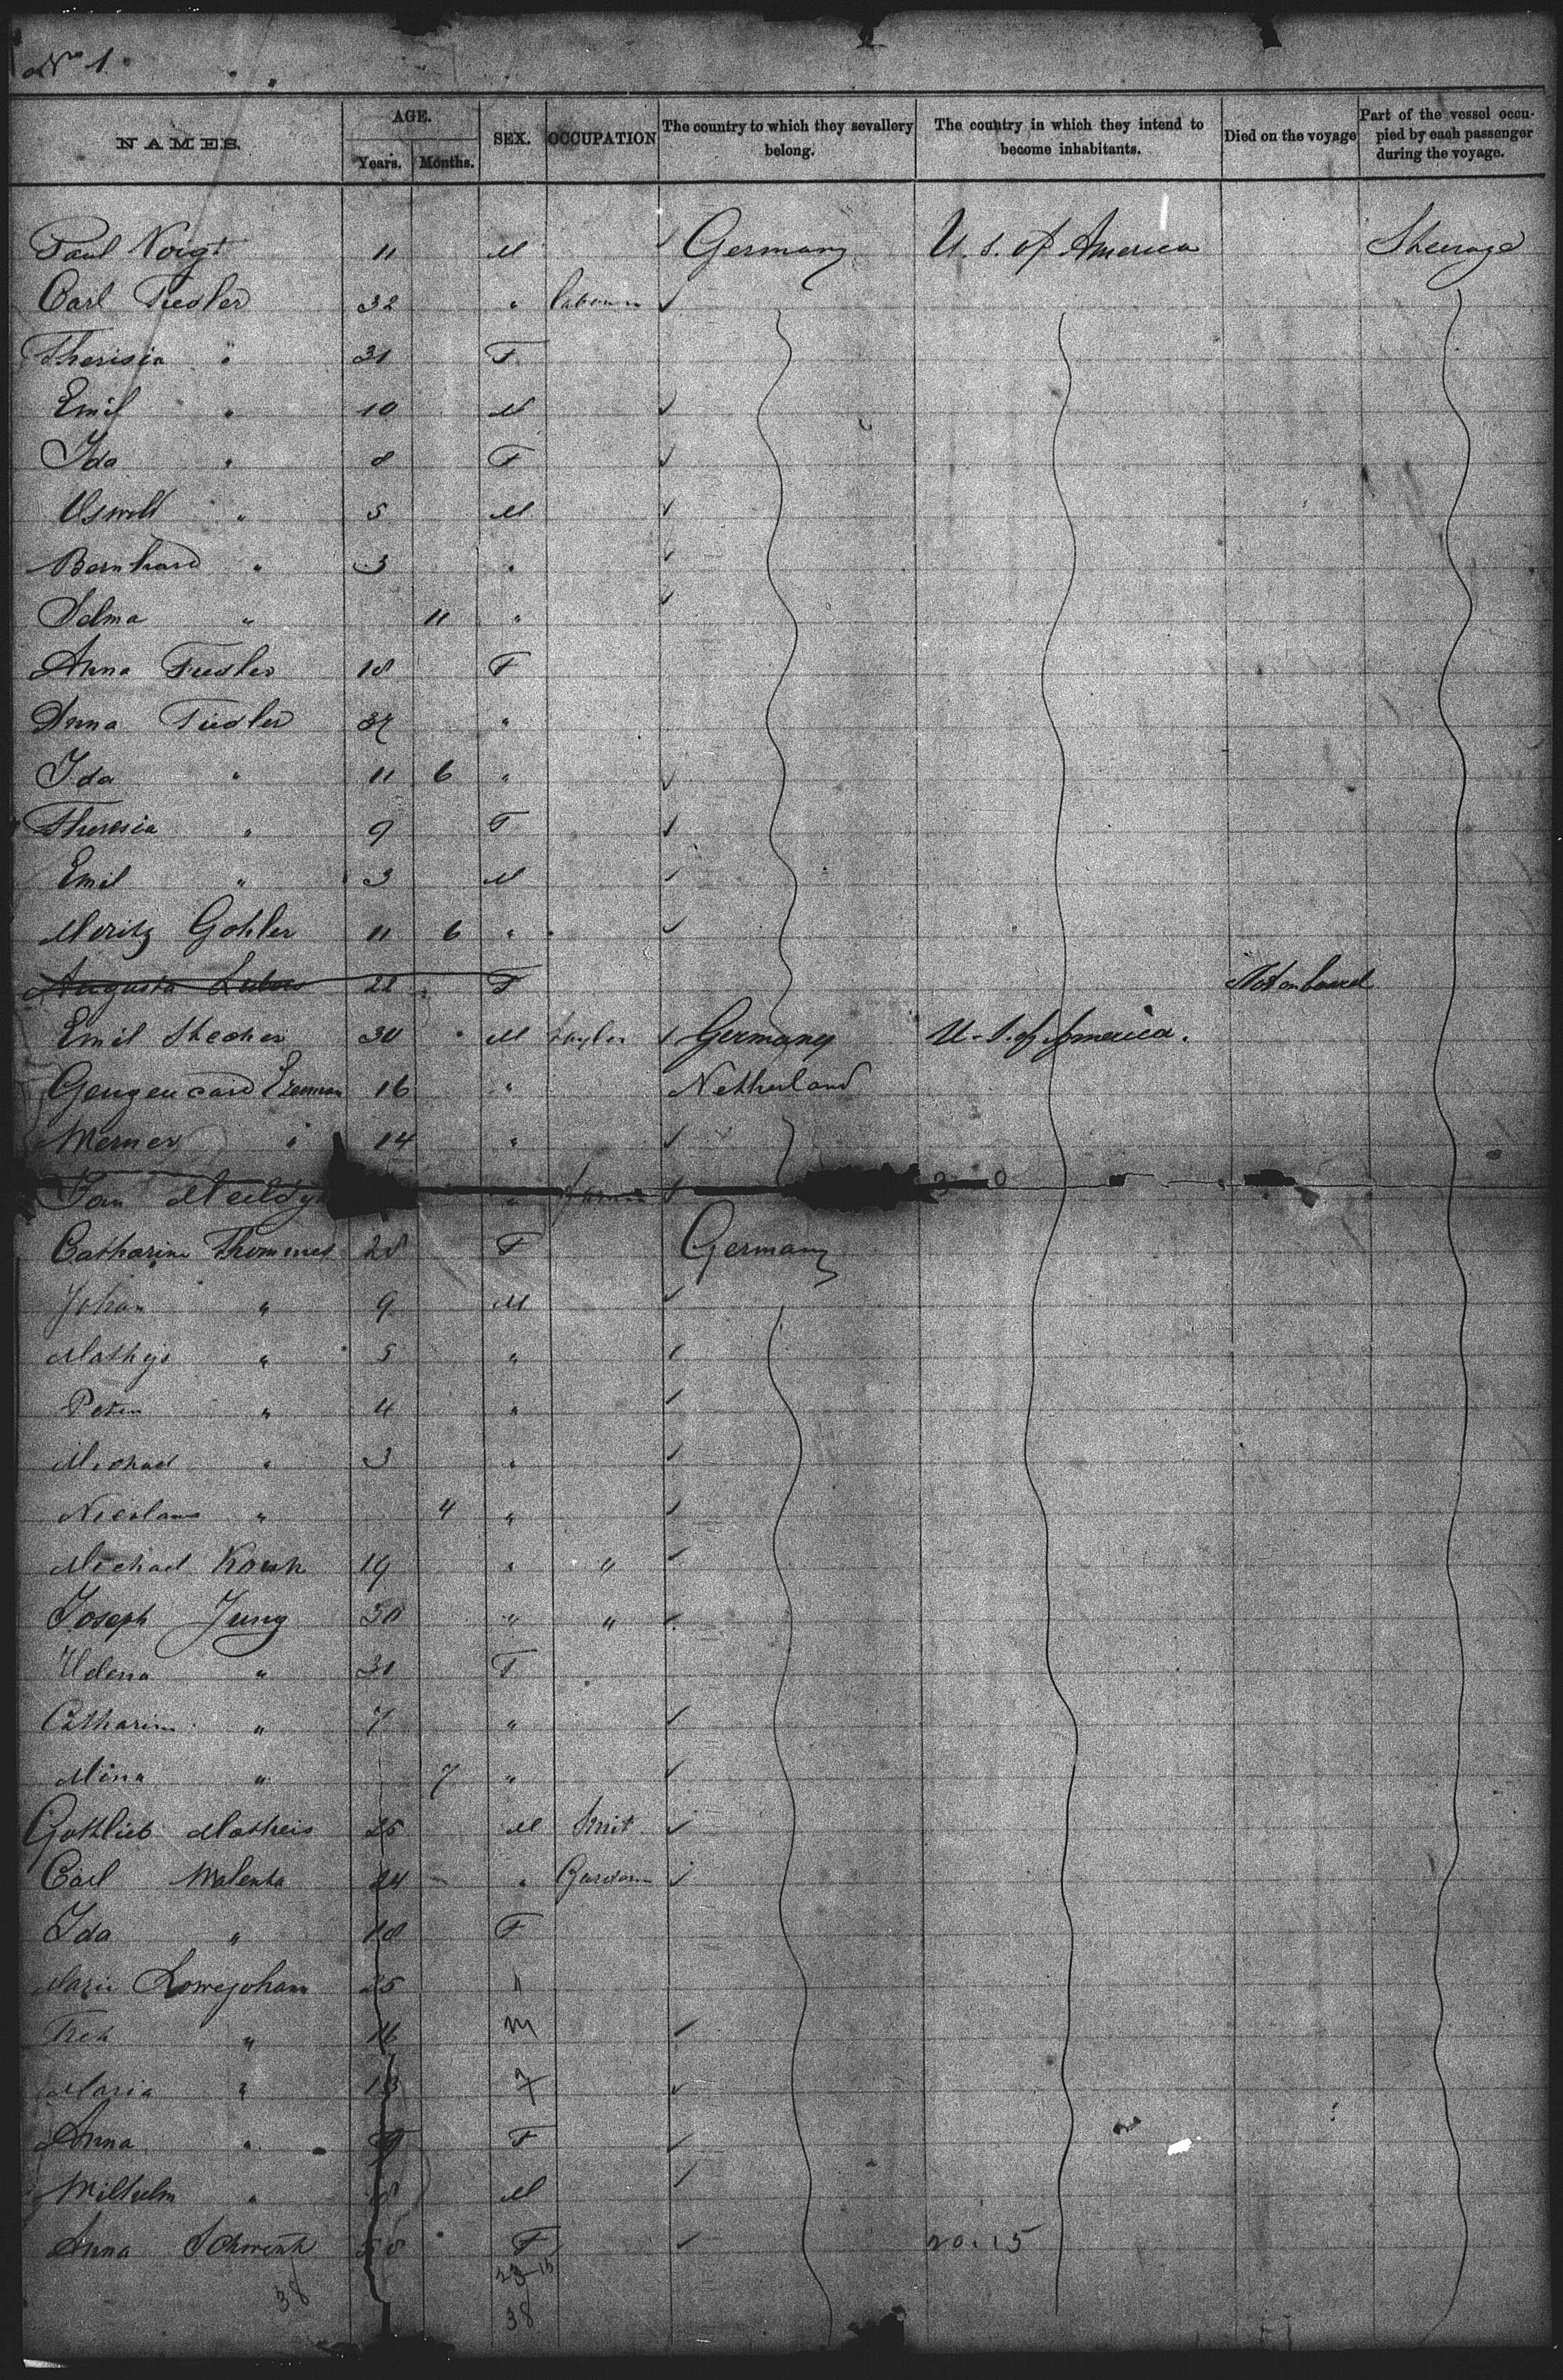 No 1.
NAMES. AGE. Years. Months. SEX. OCCUPATION The country to which they sevallery belong. The country in which they intend to become inhabitants. Died on the voyage Part of the vessel occupied by each passenger during the voyage.
Paul Voigt 11 M Germany U. S. of America Steerage
Carl Fiedler 32 "
Therisia " 31 F
Emil " 10 M
Ida " 8 F
Oswald " 5 M
Bernhard " 3 "
Selma " 11 "
Anna Fiedler 18 F
Anna Fiedler 37 "
Ida " 11 6 "
Theresia " 9 F
Emil " 3 M
Moritz Gohler 11 6 "
Augusta 22 F Not on board
Emil Stecher 30 M Germany U. S. of America.
16 " Netherland
Werner " 14 "
Jan
Catharine Thommes 28 F Germany
Johan " 9 M
Mathys " 5 "
Peter " 4 "
Michael " 3 "
Nicolaus " 4 "
Michael 19 " "
Joseph Jung 30 " "
Helena " 31 F
Catharine " 7 "
Mina " 7 "
Gottlieb Matheis 25 M Smit
Carl Walenta 24 "
Ida " 18 F
Marie Lowejohann 25 "
" 16 M
Maria " 13 F
Anna " 9 F
Wilhelm " 8 M
Anna Schwenk 58 F 20.15
38 23 15
38